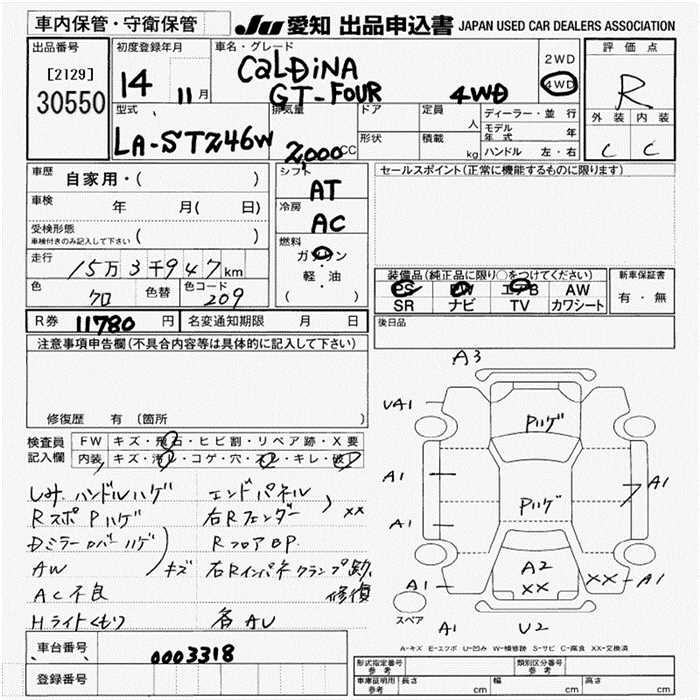 車内保管・守衛保管
JU 愛知 出品申込書 JAPAN USED CAR DEALERS ASSOCIATION
出品番号
[2129]
30550
初度登録年月
14 11月
車名・グレード
CALDiNA
GT-FOUR 4WD
2WD
4WD
評価点
R
外装 内装
C C
型式
LA-ST246W
排気量
2,000CC
ドア
定員
人
形状
積載
kg
ディーラー・並行
モデル年式 年
ハンドル 左・右
車歴 自家用・( )
車検 年 月( 日)
受検形態
車検付きのみ記入して下さい ( )
走行 15万3千947km
色 クロ 色替 色コード 209
シフト
AT
冷房
AC
燃料
ガソリン
軽・油
( )
セールスポイント(正常に機能するものに限ります)
装備品(純正品に限り○をつけてください)
PS PW エアB AW
SR ナビ TV カワシート
新車保証書
有・無
R券 11780円 名変通知期限 月 日
後日品
注意事項申告欄(不具合内容等は具体的に記入して下さい)
修復歴 有 〔箇所 〕
検査員記入欄
FW キズ・飛石・ヒビ割・リペア跡・X要
内装 キズ・汚レ・コゲ・穴・スレ・キレ・破レ
しみ ハンドルハゲ
Rスポ Pハゲ
Dミラーカバーハゲ
AW キズ
AC不良
Hライトくもり
エンドパネル
右Rフェンダー XX
RフロアBP
右Rインパネクランプ跡
修復
各AU
A3
UA1
Pハゲ
A1
A1
Pハゲ
A1
A2
XX
A1
XX
A1
スペア
A1
U2
A-キズ E-エクボ U-凹み W-補修跡 S-サビ C-腐食 XX-交換済
車台番号 0003318
登録番号
形式指定番号
参考
類別区分番号
参考
車庫証明用
参考
長さ cm
幅 cm
高さ cm